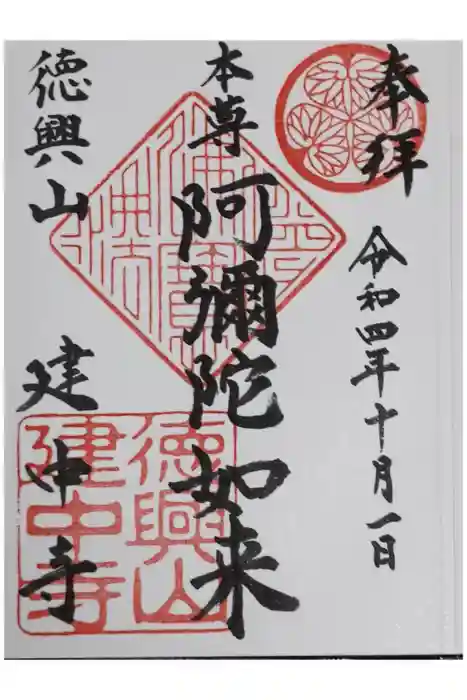 奉拝
令和四年十月一日
本尊
阿彌陀如来
徳興山
建中寺
徳興山
建中寺